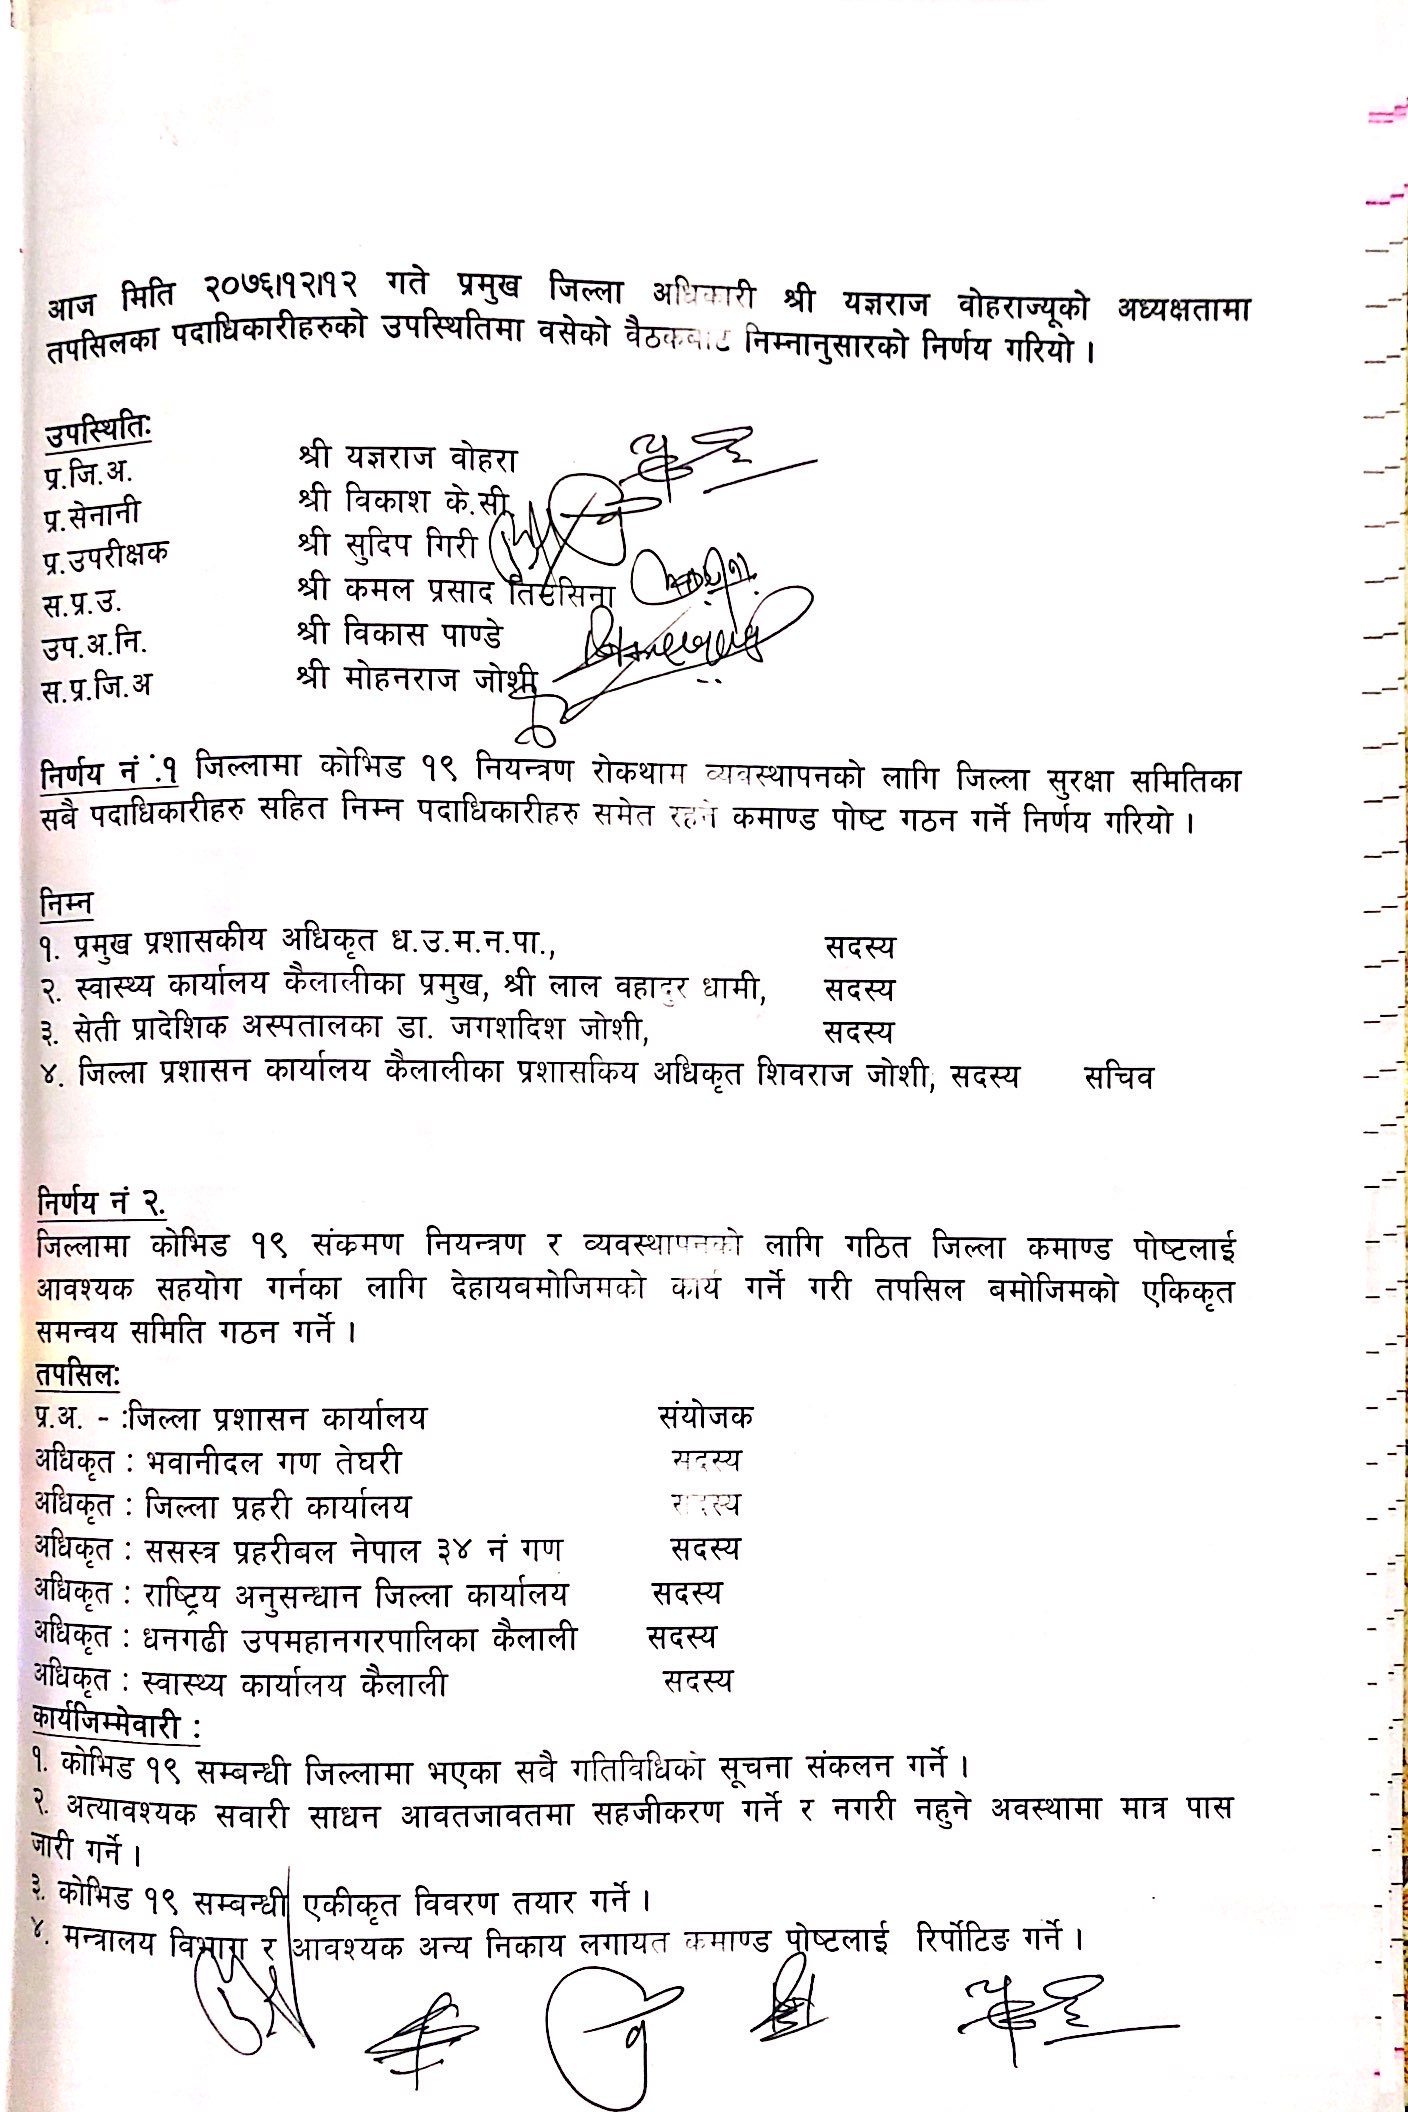 आज मिति २०७६।१२।१२ गते प्रमुख जिल्ला अधिकारी श्री यज्ञराज वोहराज्यूको अध्यक्षतामा
तपसिलका पदाधिकारीहरुको उपस्थितिमा वसेको वैठकबाट निम्नानुसारको निर्णय गरियो ।
उपस्थितिः
प्र.जि.अ. श्री यज्ञराज वोहरा
प्र.सेनानी श्री विकाश के.सी.
प्र.उपरीक्षक श्री सुदिप गिरी
स.प्र.उ. श्री कमल प्रसाद तिमसिना
उप.अ.नि. श्री विकास पाण्डे
स.प्र.जि.अ श्री मोहनराज जोशी
निर्णय नं ं.१ जिल्लामा कोभिड १९ नियन्त्रण रोकथाम व्यवस्थापनको लागि जिल्ला सुरक्षा समितिका
सबै पदाधिकारीहरु सहित निम्न पदाधिकारीहरु समेत रहने कमाण्ड पोष्ट गठन गर्ने निर्णय गरियो ।
निम्न
१. प्रमुख प्रशासकीय अधिकृत ध.उ.म.न.पा., सदस्य
२. स्वास्थ्य कार्यालय कैलालीका प्रमुख, श्री लाल वहादुर धामी, सदस्य
३. सेती प्रादेशिक अस्पतालका डा. जगशदिश जोशी, सदस्य
४. जिल्ला प्रशासन कार्यालय कैलालीका प्रशासकिय अधिकृत शिवराज जोशी, सदस्य सचिव
निर्णय नं २.
जिल्लामा कोभिड १९ संकमण नियन्त्रण र व्यवस्थापनको लागि गठित जिल्ला कमाण्ड पोष्टलाई
आवश्यक सहयोग गर्नका लागि देहायबमोजिमको कार्य गर्ने गरी तपसिल बमोजिमको एकिकृत
समन्वय समिति गठन गर्ने ।
तपसिलः
प्र.अ. - :जिल्ला प्रशासन कार्यालय संयोजक
अधिकृत : भवानीदल गण तेघरी सदस्य
अधिकृत : जिल्ला प्रहरी कार्यालय सदस्य
अधिकृत : ससस्त्र प्रहरीबल नेपाल ३४ नं गण सदस्य
अधिकृत : राष्ट्रिय अनुसन्धान जिल्ला कार्यालय सदस्य
अधिकृत : धनगढी उपमहानगरपालिका कैलाली सदस्य
अधिकृत : स्वास्थ्य कार्यालय कैलाली सदस्य
कार्यजिम्मेवारी :
१. कोभिड १९ सम्बन्धी जिल्लामा भएका सवै गतिविधिको सूचना संकलन गर्ने ।
२. अत्यावश्यक सवारी साधन आवतजावतमा सहजीकरण गर्ने र नगरी नहुने अवस्थामा मात्र पास
जारी गर्ने ।
३. कोभिड १९ सम्बन्धी एकीकृत विवरण तयार गर्ने ।
४. मन्त्रालय विभाग र आवश्यक अन्य निकाय लगायत कमाण्ड पोष्टलाई रिर्पोटिङ गर्ने ।